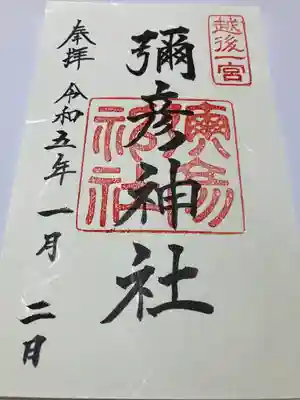 越後一宮
彌彦神社
奉拝 令和五年 一月 二日